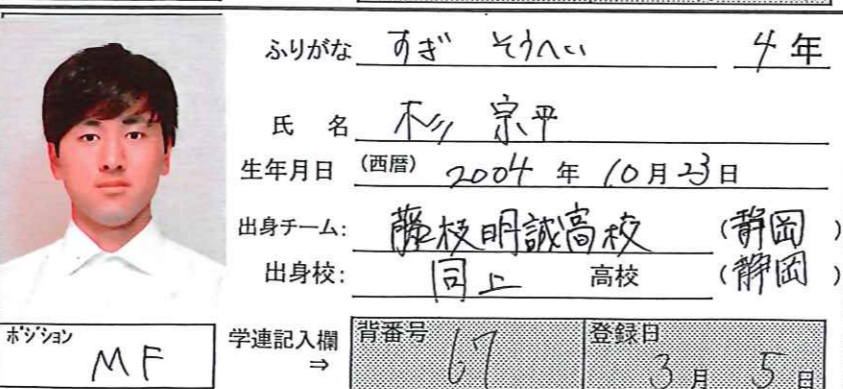 ふりがな すぎ そうへい 4年
氏 名 杉 宗平
生年月日 (西暦) 2004 年 10月23日
出身チーム: 藤枝明誠高校 (静岡)
出身校: 同上 高校 (静岡)
ポジション MF
学連記入欄 ⇒ 背番号 67 登録日 3月 5日